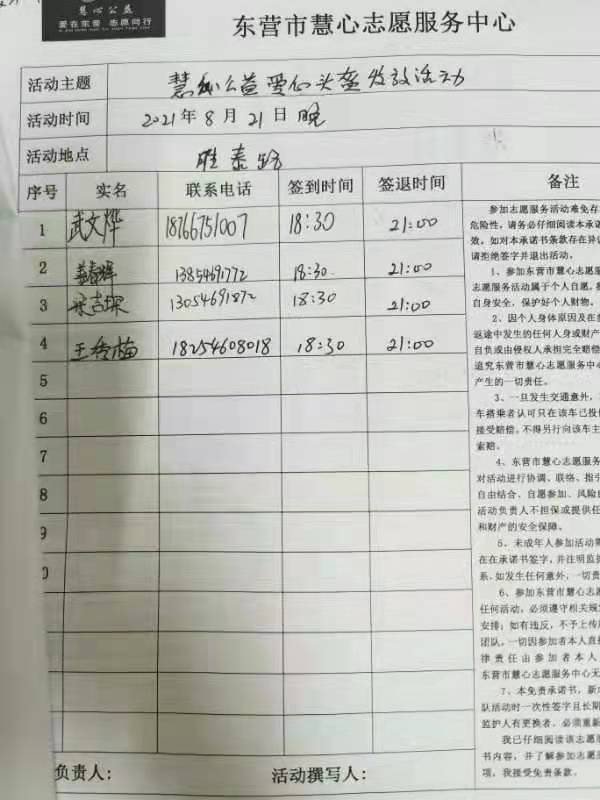 慧心公益
爱在东营 志愿同行
东营市慧心志愿服务中心
活动主题 慧心公益爱心头盔发放活动
活动时间 2021年8月21日晚
活动地点 胜泰路
序号 实名 联系电话 签到时间 签退时间 备注
1 武文烨 18766751007 18:30 21:00
2 13854691772 18:30 21:00
3 13054691872 18:30 21:00
4 王秀梅 18254608018 18:30 21:00
5
6
7
8
9
0
参加志愿服务活动难免存
危险性,请务必仔细阅读本承诺
效,如对本承诺书条款存在异议
请拒绝签字并退出活动。
1、参加东营市慧心志愿服
志愿服务活动属于个人自愿,
自身安全,保护好个人财物。
2、因个人身体原因及在参
返途中发生的任何人身或财产
自负或由侵权人承担完全赔偿
追究东营市慧心志愿服务中心
产生的一切责任。
3、一旦发生交通意外,
车搭乘者认可只在该车已投保
接受赔偿,不得另行向该车主
索赔。
4、东营市慧心志愿服务
对活动进行协调、联络、指引
自由结合、自愿参加、风险自
活动负责人不担保或提供任
和财产的安全保障。
5、未成年人参加活动需
在在承诺书签字,并注明监护
系,如发生任何意外,一切责
6、参加东营市慧心志愿服
任何活动,必须遵守相关规定
安排;如有违反,不予上传
团队,一切因参加者本人直接
律责任由参加者本人
东营市慧心志愿服务中心无
7、本免责承诺书,新
队活动时一次性签字且长期
监护人有更换者,必须重新
我已仔细阅读该志愿服
书内容,并了解参加志愿
项,我接受免责条款。
负责人: 活动撰写人: